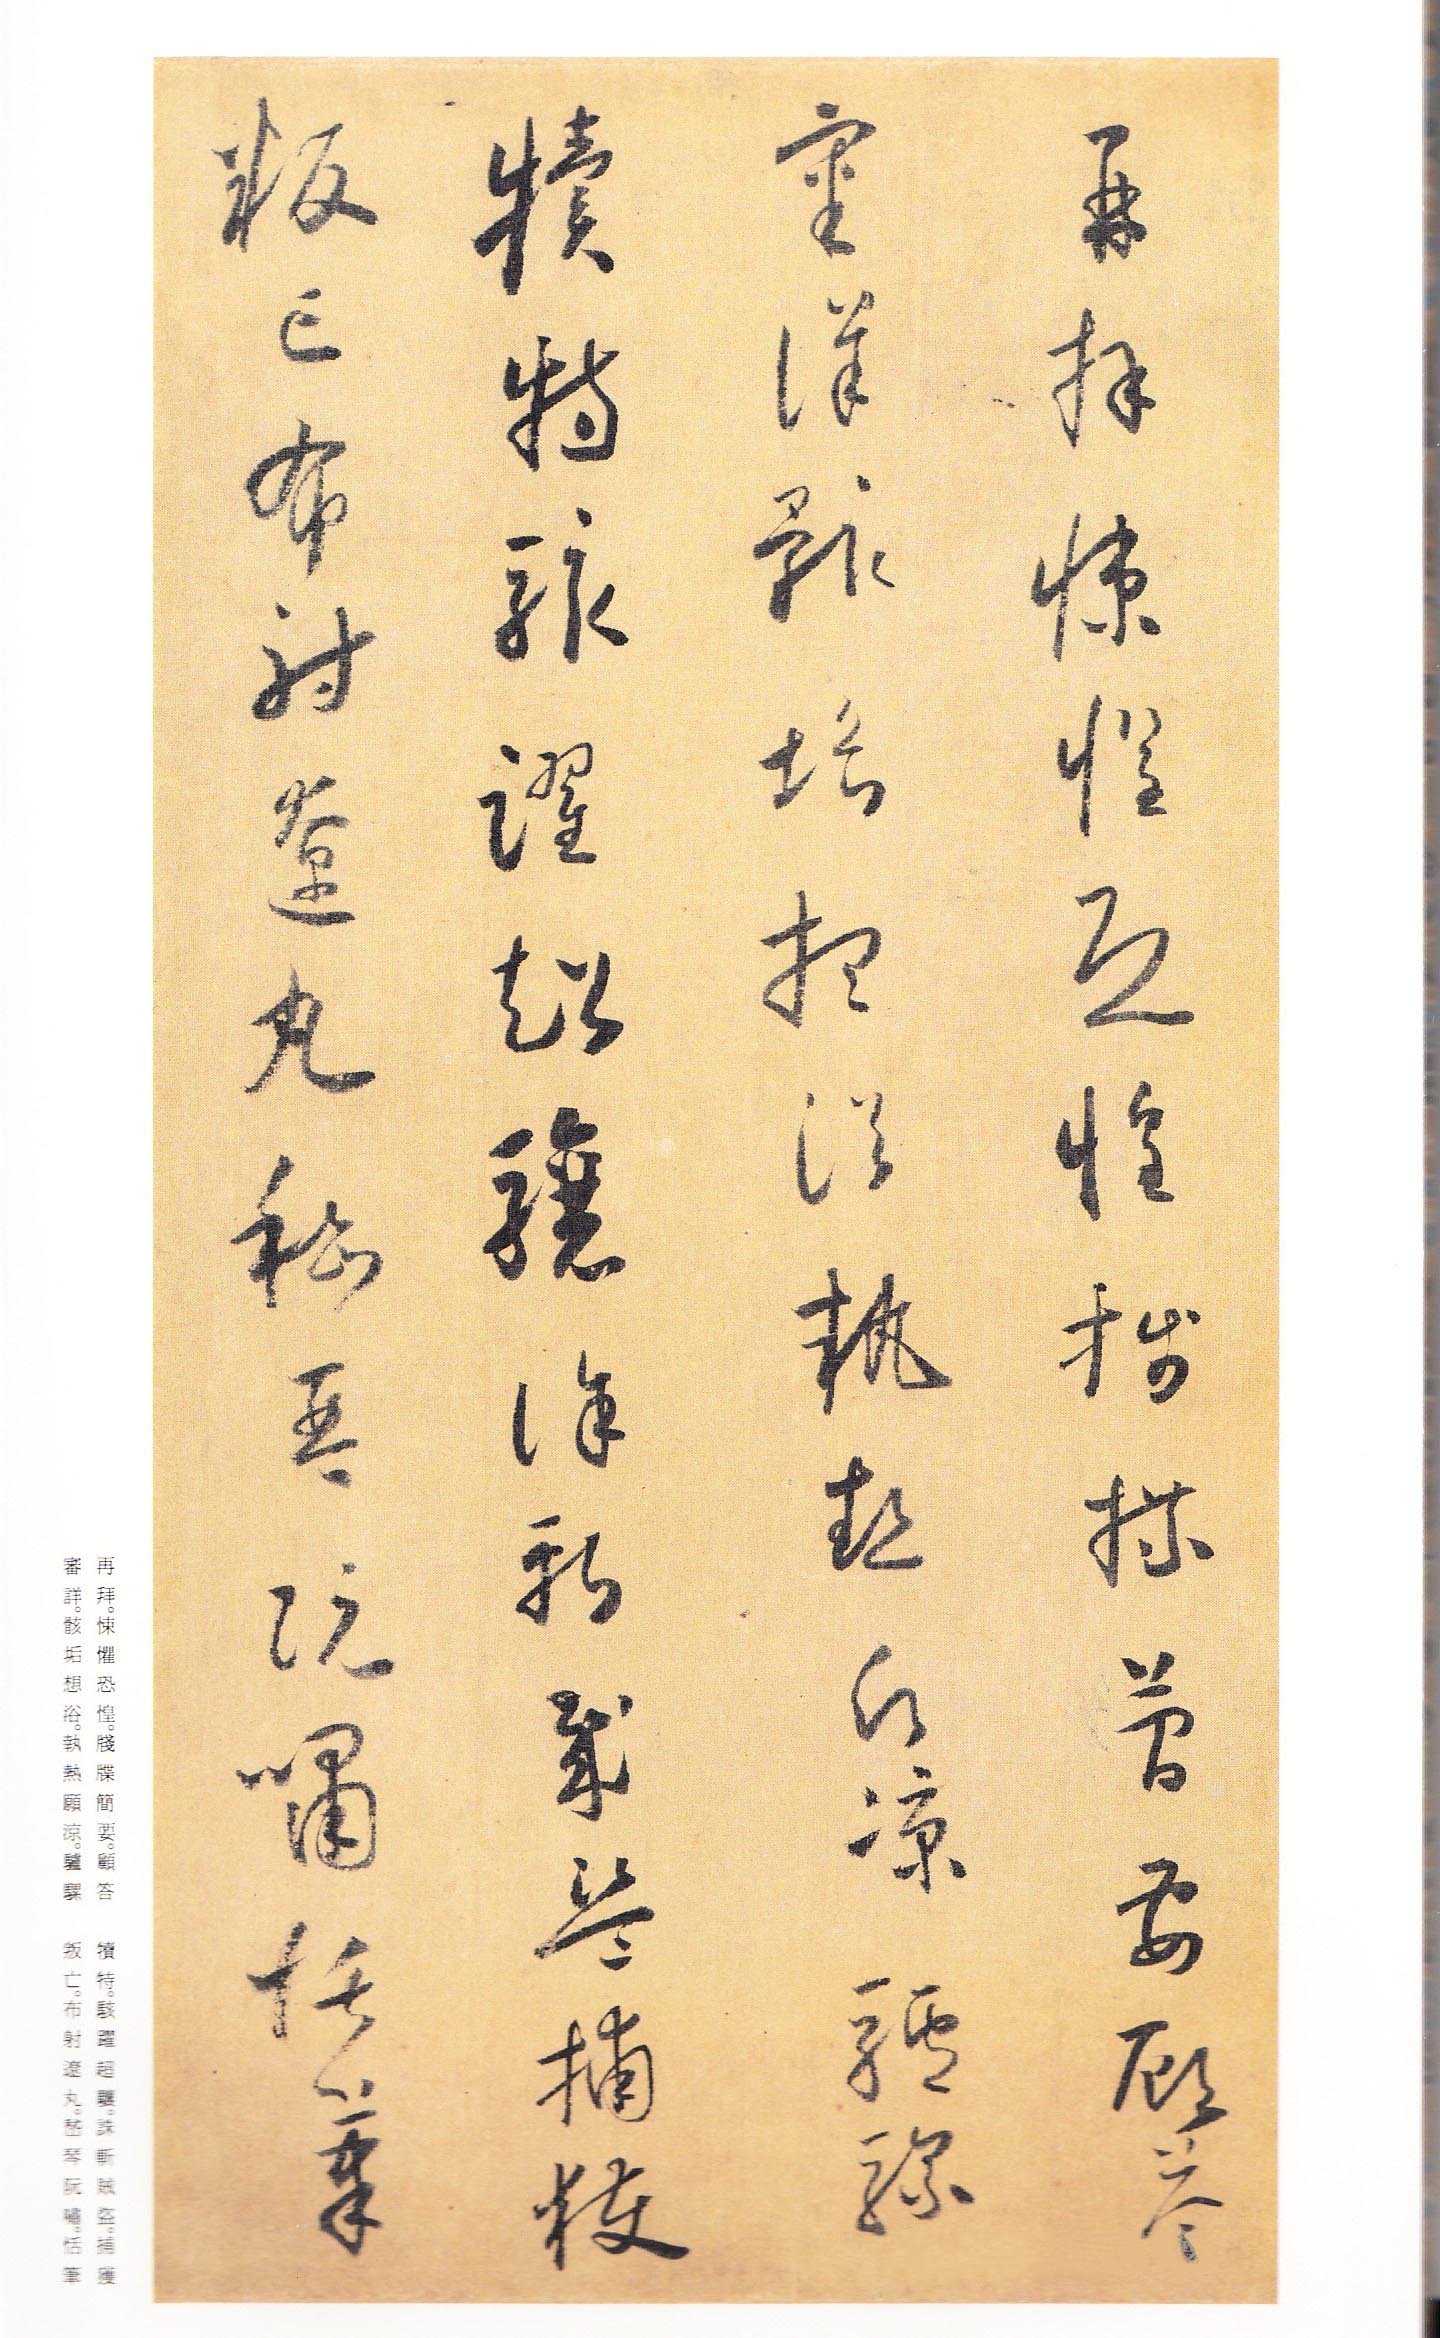 再拜悚懼恐惶牋牒簡要顧答
審詳骸垢想浴執熱願涼驢騾
犢特駭躍超驤誅斬賊盜捕獲
叛亡布射遼丸嵇琴阮嘯恬筆
再拜。悚懼恐惶。牋牒簡要。顧答
審詳。骸垢想浴。執熱願涼。驢騾
犢特。駭躍超驤。誅斬賊盜。捕獲
叛亡。布射遼丸。嵇琴阮嘯。恬筆